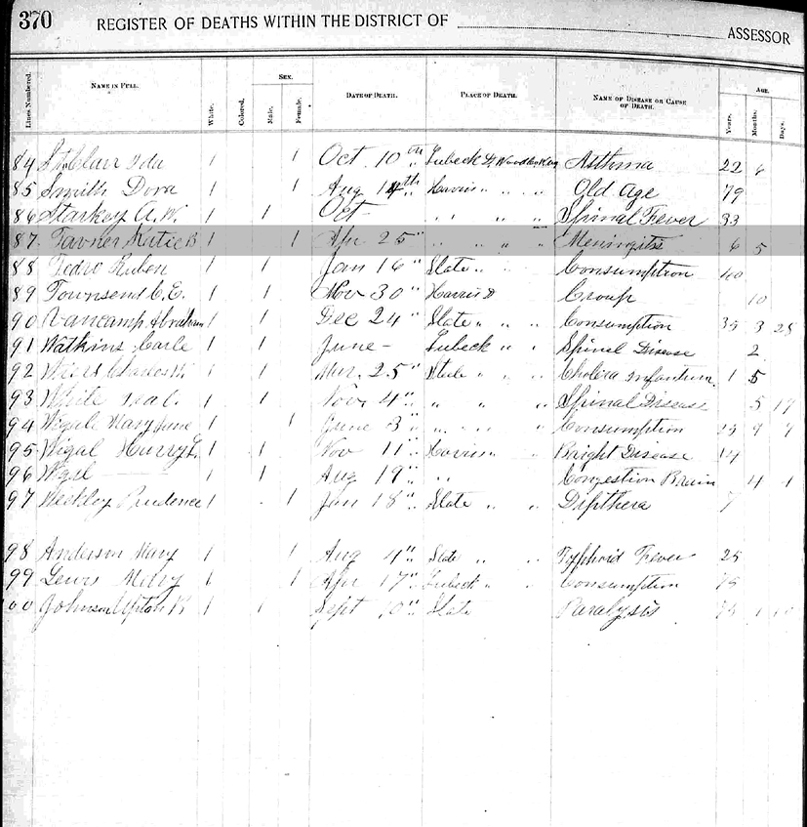 370 REGISTER OF DEATHS WITHIN THE DISTRICT OF ASSESSOR
Lines Numbered. NAME IN FULL. White. Colored. SEX. Male. Female. DATE OF DEATH. PLACE OF DEATH. NAME OF DISEASE OR CAUSE OF DEATH. AGE. Years. Months. Days.
84 St Clair Ida 1 1 Oct 10th Lubeck D. Wood Asthma 22 6
85 Smith Dora 1 1 Aug 14th Harris " " " Old Age 79
86 Starkey A. W. 1 1 Oct - " " " " Spinal Fever 33
87 Tavner Katie B 1 1 Apr 25" " " " " Meningitis 6 5
88 Pedro Ruben 1 1 Jan 16" Slate " " Consumption 40
89 Townsend C. E. 1 1 Nov 30" Harris D Croup 10
90 Vancamp Abraham 1 1 Dec 24" Slate " " " Consumption 3 25
91 Watkins 1 1 June - Lubeck " " Spinal Disease 2
92 1 1 25" Slate " " Cholera Infantum 1 5
93 White 1 1 Nov 4" " " " Spinal Disease 5 17
94 Mary Jane 1 1 June 3" " " " Consumption 9 9
95 Wigal Harry L. 1 1 Nov 11" Harris " " Bright Disease 14
96 1 1 Aug 19" " " Congestion Brain 4 1
97 Weekley Prudence 1 1 Jan 18" Slate " " Dipthera 7
98 Anderson Mary 1 1 Aug 4" Slate " " Typhoid Fever 25
99 Lewis Mary 1 1 Apr 17" Lubeck " " Consumption 75
100 Johnson 1 1 Sept 10" Slate Paralysis